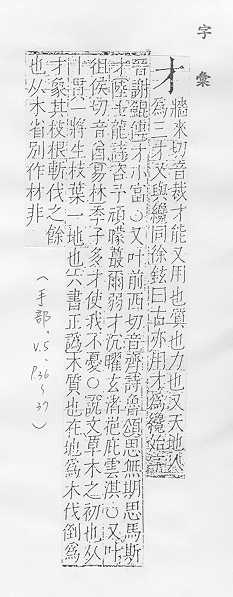 字彙
才
牆來切音裁才能又用也質也力也又天地人
爲三才又與纔同徐鉉曰古亦用才爲纔始字
晉謝鯤傳才小富○又叶前西切音齊詩魯頌思無期思馬斯
才陸士龍詩咨予頑曚蕞爾弱才沉曜玄渚挹庇雲淇○又叶
徂侯切音酋易林季子多才使我不憂○說文草木之初也从
丨貫一將生枝葉一地也六書正譌木質也在地爲木伐倒爲
才象其枝根斬伐之餘
也从木省別作材非
(手部, v.5, P.36~37)